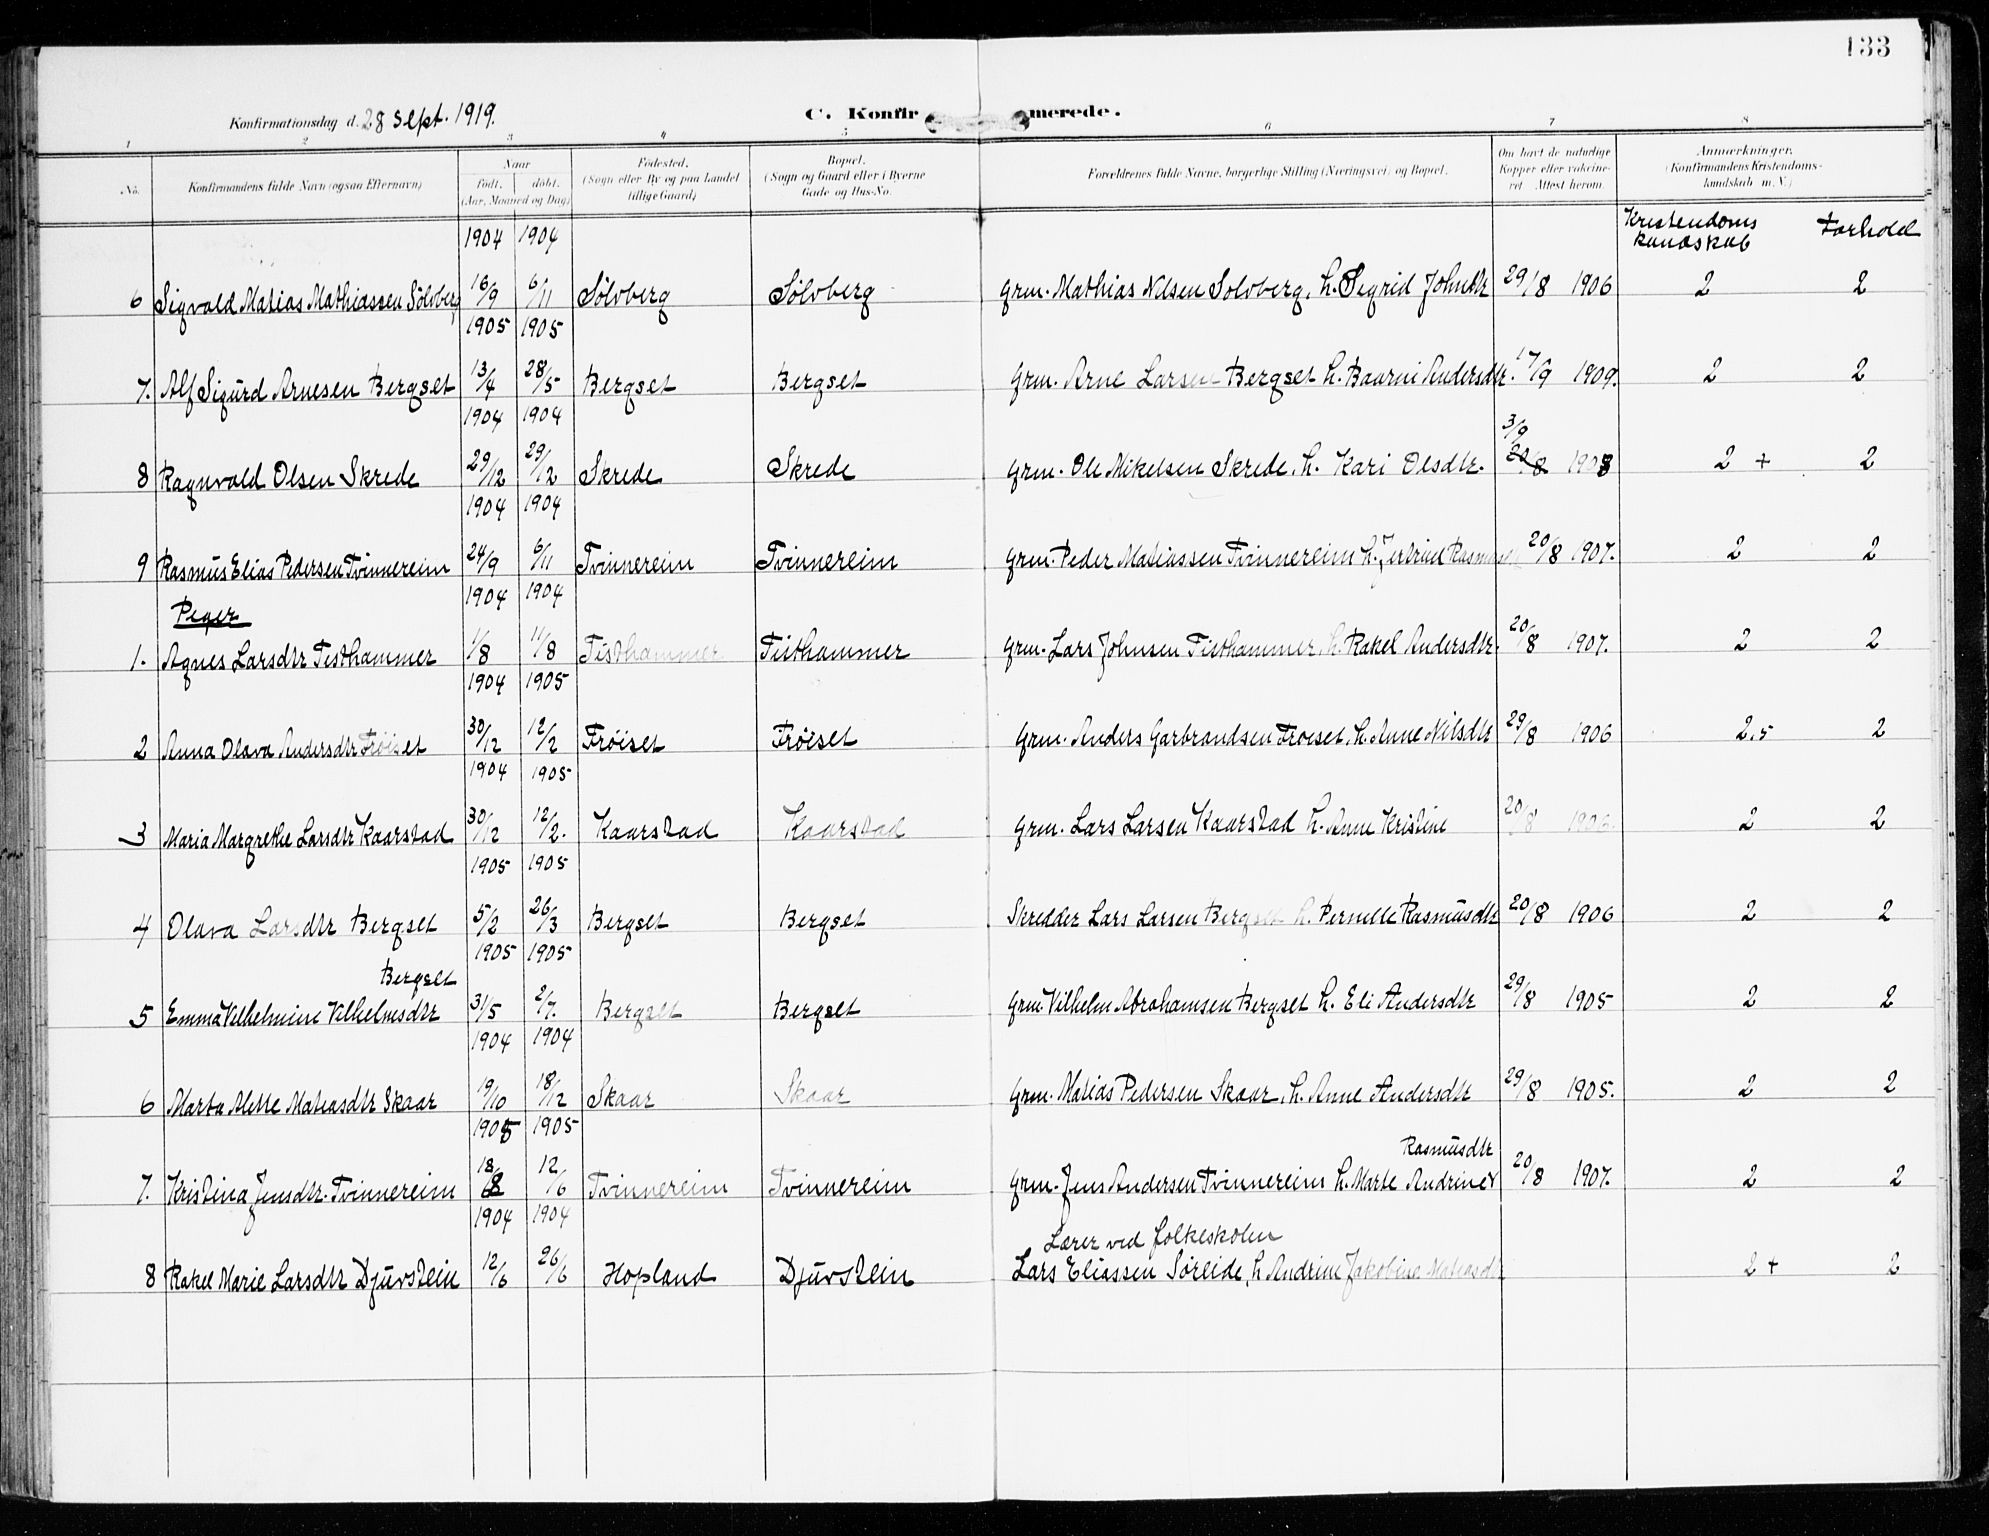 133
Konfirmationsdag d. 28 sept. 1919.
C. Konfirmerede.
1 2 3 4 5 6 7 8
No. Konfirmandens fulde Navn (ogsaa Efternavn) Naar født. døbt. (Aar, Maaned og Dag) Fødested. (Sogn eller By og paa Landet tillige Gaard) Bopæl. (Sogn og Gaard eller i Byerne Gade og Hus-No. Forældrenes fulde Navne, borgerlige Stilling (Næringsvei) og Bopæl. Om havt de naturlige Kopper eller vakcineret. Attest herom. Anmærkninger. (Konfirmandens Kristendomskundskab m. V.)
Kristendoms kundskab Forhold
1904 1904
6 Sigvald Matias Mathiassen Sölvberg 16/9 6/11 Sölvberg Sölvberg Grm. Mathias Nilsen Solvberg, h. Sigrid Johnsdtr 29/8 1906 2 2
1905 1905
7. Alf Sigurd Arnesen Bergset 13/4 28/5 Bergset Bergset Grm. Arne Larsen Bergset h. Baarni Andersdtr. 17/9 1909. 2 2
1904 1904
3/9
8 Ragnvald Olsen Skrede 29/12 29/12 Skrede Skrede Grm. Ole Mikelsen Skrede, h. Kari Olsdtr. 20/8 1908 2 + 2
1904 1904
9 Rasmus Elias Pedersen Tvinnereim 24/9 6/11 Tvinnereim Tvinnereim Grm. Peder Matiassen Tvinnereim h. Jertrud 20/8 1907. 2 2
1904 1904
Peger
1. Agnes Larsdtr Tisthammer 1/8 11/8 Tisthammer Tisthammer Grm. Lars Johnsen Tisthammer, h. Rakel Andersdtr. 20/8 1907. 2 2
1904 1905
2 Anna Olava Andersdtr Fröiset 30/12 12/2 Fröiset Fröiset Grm. Anders Garbrandsen Froiset, h. Anne Nilsdtr 29/8 1906 2,5 2
1904 1905
3 Maria Margrethe Larsdtr Kaarstad 30/12 12/2. Kaarstad Kaarstad Grm. Lars Larsen Kaarstad h. Anne Kristine 20/8 1906. 2 2
1905 1905
4 Olava Larsdtr Bergset 5/2 26/3 Bergset Bergset Skredder Lars Larsen Bergset h. Pernille Rasmusdtr 20/8 1906 2 2
1905 1905
Bergset
5 Emma Vilhelmine Vilhelmsdtr 31/5 2/7. Bergset Bergset Grm. Vilhelm Abrahamsen Bergset h. Eli Andersdtr 29/8 1905 2 2
1904 1904
6 Marta Mette Matiasdtr Skaar 19/10 18/12 Skaar Skaar Grm. Matias Pedersen Skaar, h. Anne Andersdtr 29/8 1905. 2 2
1905 1905
Rasmusdtr
7. Kristina Jensdtr. Tvinnereim 18/ 12/6 Tvinnereim Tvinnereim Grm. Jens Andersen Tvinnereim h. Marte Andrine 20/8 1907. 2 2
1904 1904
Lærer ved folkeskolen
8 Rakel Marie Larsdtr Djuvstein 12/6 26/6 Hopland Djuvstein Lars Eliassen Söreide, h Andrine Jakobine Matiasdtr 2 + 2